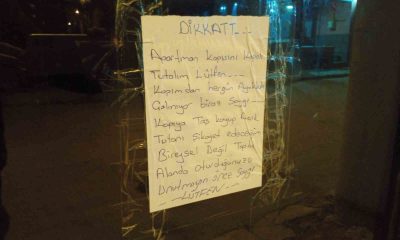 DİKKAT!...
Apartman Kapısını Kapalı
Tutalım LÜTFEN...
Kapımdan hergün Ayakkabı
Çalınıyor biraz Saygı...
Kapıya Taş koyup Açık
Tutanı Şikayet edeceğim
Bireysel Değil Toplu
Alanda oturduğunuzu
Unutmayın Saygı
LÜTFEN